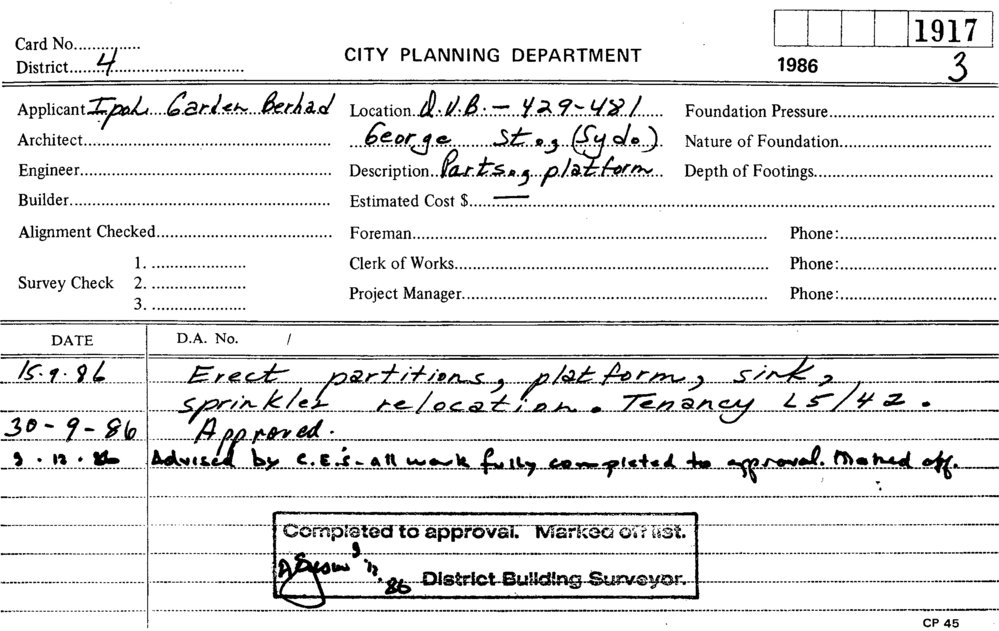 Card No.
District 4
CITY PLANNING DEPARTMENT
1917
1986
3
Applicant Ipoh Garden Berhad
Location Q.V.B. - 429-481
George St., (Syd.)
Foundation Pressure
Architect
Nature of Foundation
Engineer
Description Parts., platform
Depth of Footings
Builder
Estimated Cost $ —
Alignment Checked
Foreman
Phone:
Survey Check
1.
2.
3.
Clerk of Works
Phone:
Project Manager
Phone:
DATE
D.A. No. /
15.9.86 Erect partitions, platform, sink,
sprinkler relocation. Tenancy L5/42.
30-9-86 Approved.
9.12.86 Advised by C.E.'s - all work fully completed to approval. Marked off.
Completed to approval. Marked off list.
9.12.86 District Building Surveyor.
CP 45